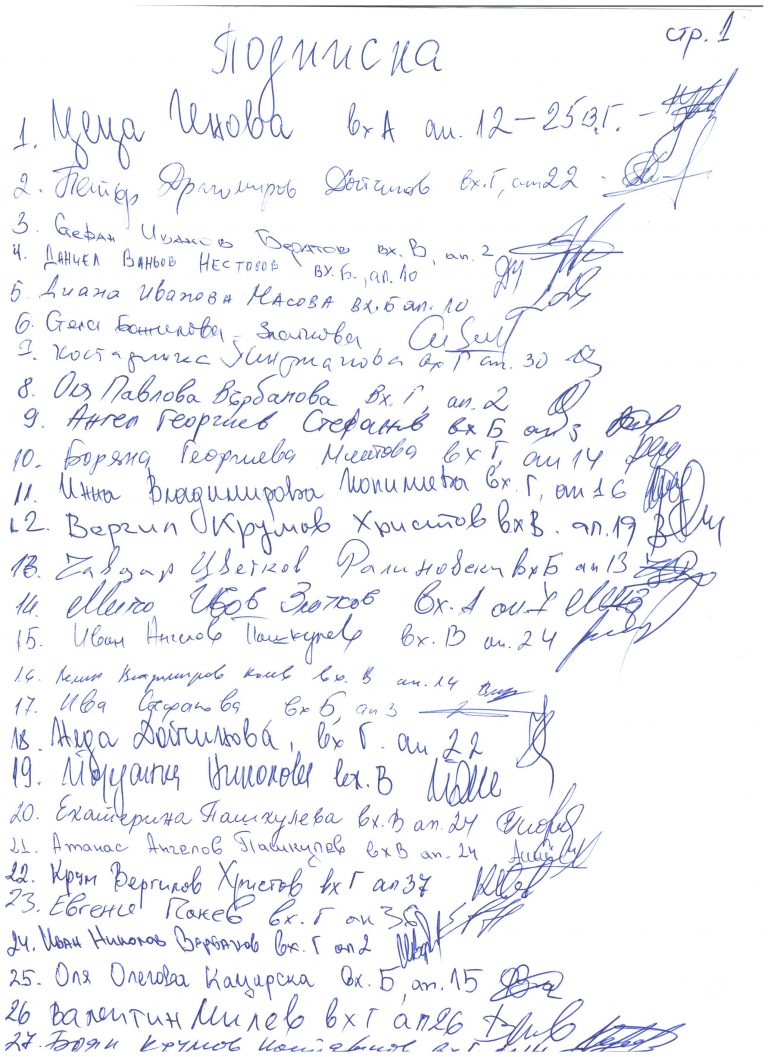 стр. 1
Подписка
1. Цеца Ченова вх А ап. 12 – 25в.Г. –
2. Петър Драгомиров Дойчинов вх. Г, ап 22 -
3. Стефан Иванов вх. В, ап. 2
4. Даниел Ваньов Несторов вх. Б., ап. 10
5. Диана Иванова Масова вх. Б ап. 10
6. Златкова
7. Костадинка вх Г ап. 30
8. Оля Павлова Върбанова вх. Г, ап. 2
9. Ангел Георгиев Стефанов вх Б ап 3
10. Боряна Георгиева вх Г, ап 14
11. Инна Владимирова вх. Г, ап 16
12. Вергил Крумов Христов вх В. ап. 19
13. Цветков вх Б ап 13
14. Мето Златков вх. А ап 1
15. Иван Ангелов Пашкулев вх. В ап. 24
16. вх. В ап. 14
17. Ива Стефанова вх Б, ап 3
18. Неда Дойчинова, вх Г. ап. 22
19. Йорданка Николова вх. В
20. Екатерина Пашкулева вх. В ап. 24
21. Атанас Ангелов Пашкулев вх В ап. 24
22. Крум Вергилов Христов вх Г ап 37
23. Евгени вх. Г ап 36
24. Иван Николов Върбанов вх. Г ап 2
25. Оля Олегова Кацарска вх. Б, ап. 15
26 Валентин Милев вх Г ап 26
27. Боян Крумов